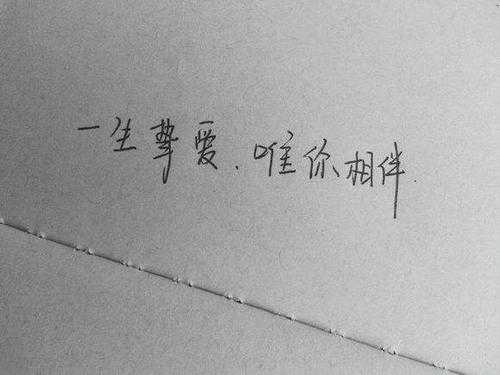 一生挚爱.唯你相伴.